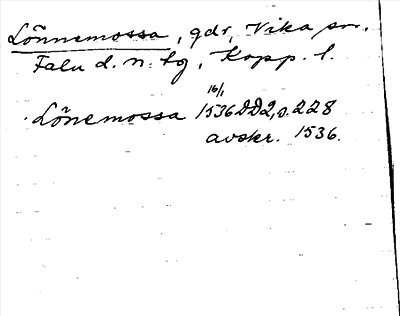 Lönnemossa, gdr, Vika sn.
Falu d. n. tg, Kopp. l.
16/1
Lönemossa 1536 DD2, s. 228
avskr. 1536.